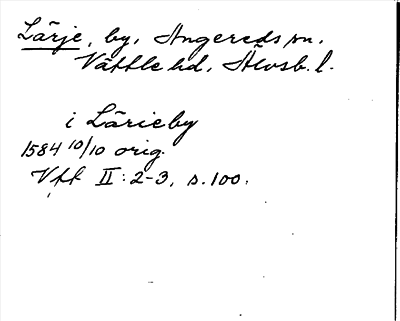 Lärje, by, Angereds sn.
Vättle hd, Älvsb. l.
i Lärieby
1584 10/10 orig.
Vff II: 2-3, s. 100.